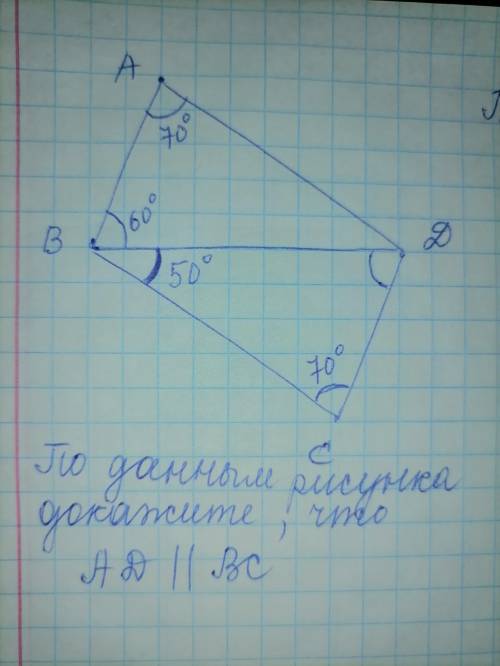 А
70°
60°
В
Д
50°
70°
С
По данным рисунка
докажите, что
АД || ВС